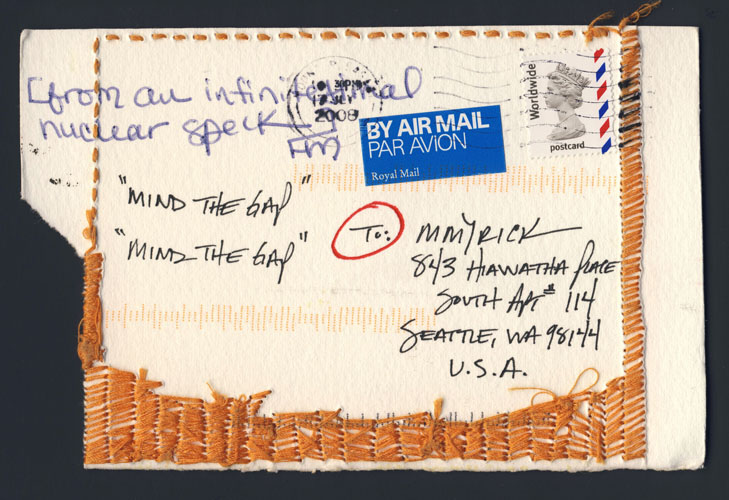 [from an infinitesimal
nuclear speck]
2009
BY AIR MAIL
PAR AVION
Royal Mail
Worldwide
postcard
"MIND THE GAP"
"MIND THE GAP"
To: MMYRICK
843 HIAWATHA PLACE
SOUTH APT# 114
SEATTLE, WA 98144
U.S.A.